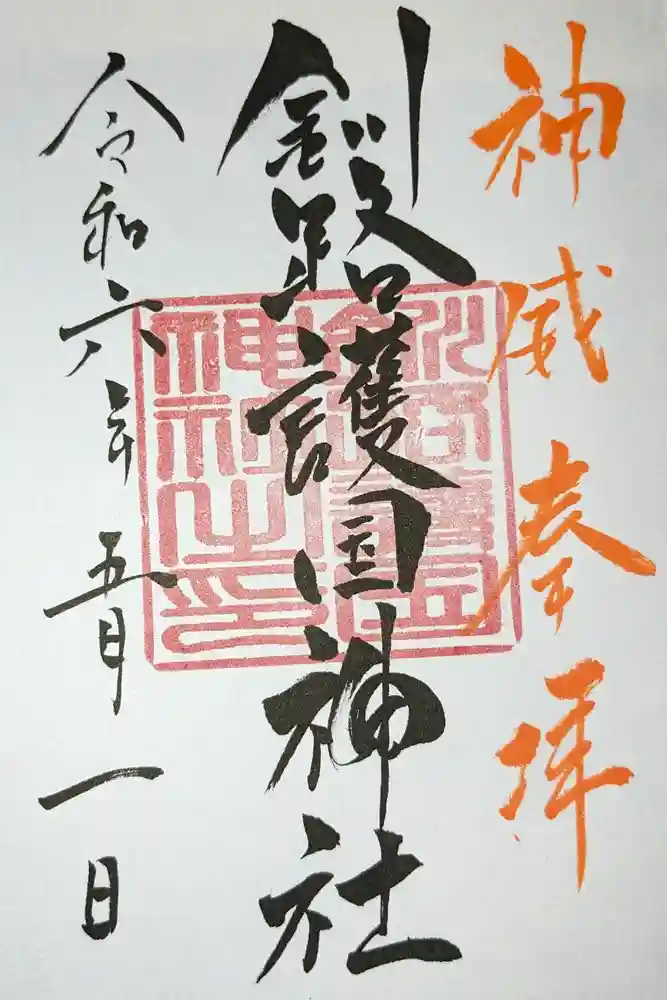 神威奉拝
釧路護国神社
令和六年五月一日
釧路護國
神社之印